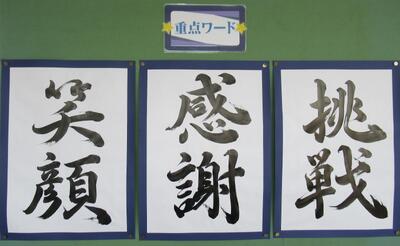 重点ワード
挑戦
感謝
笑顔